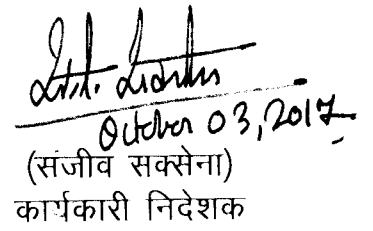 October 03, 2017
(संजीव सक्सेना)
कार्यकारी निदेशक